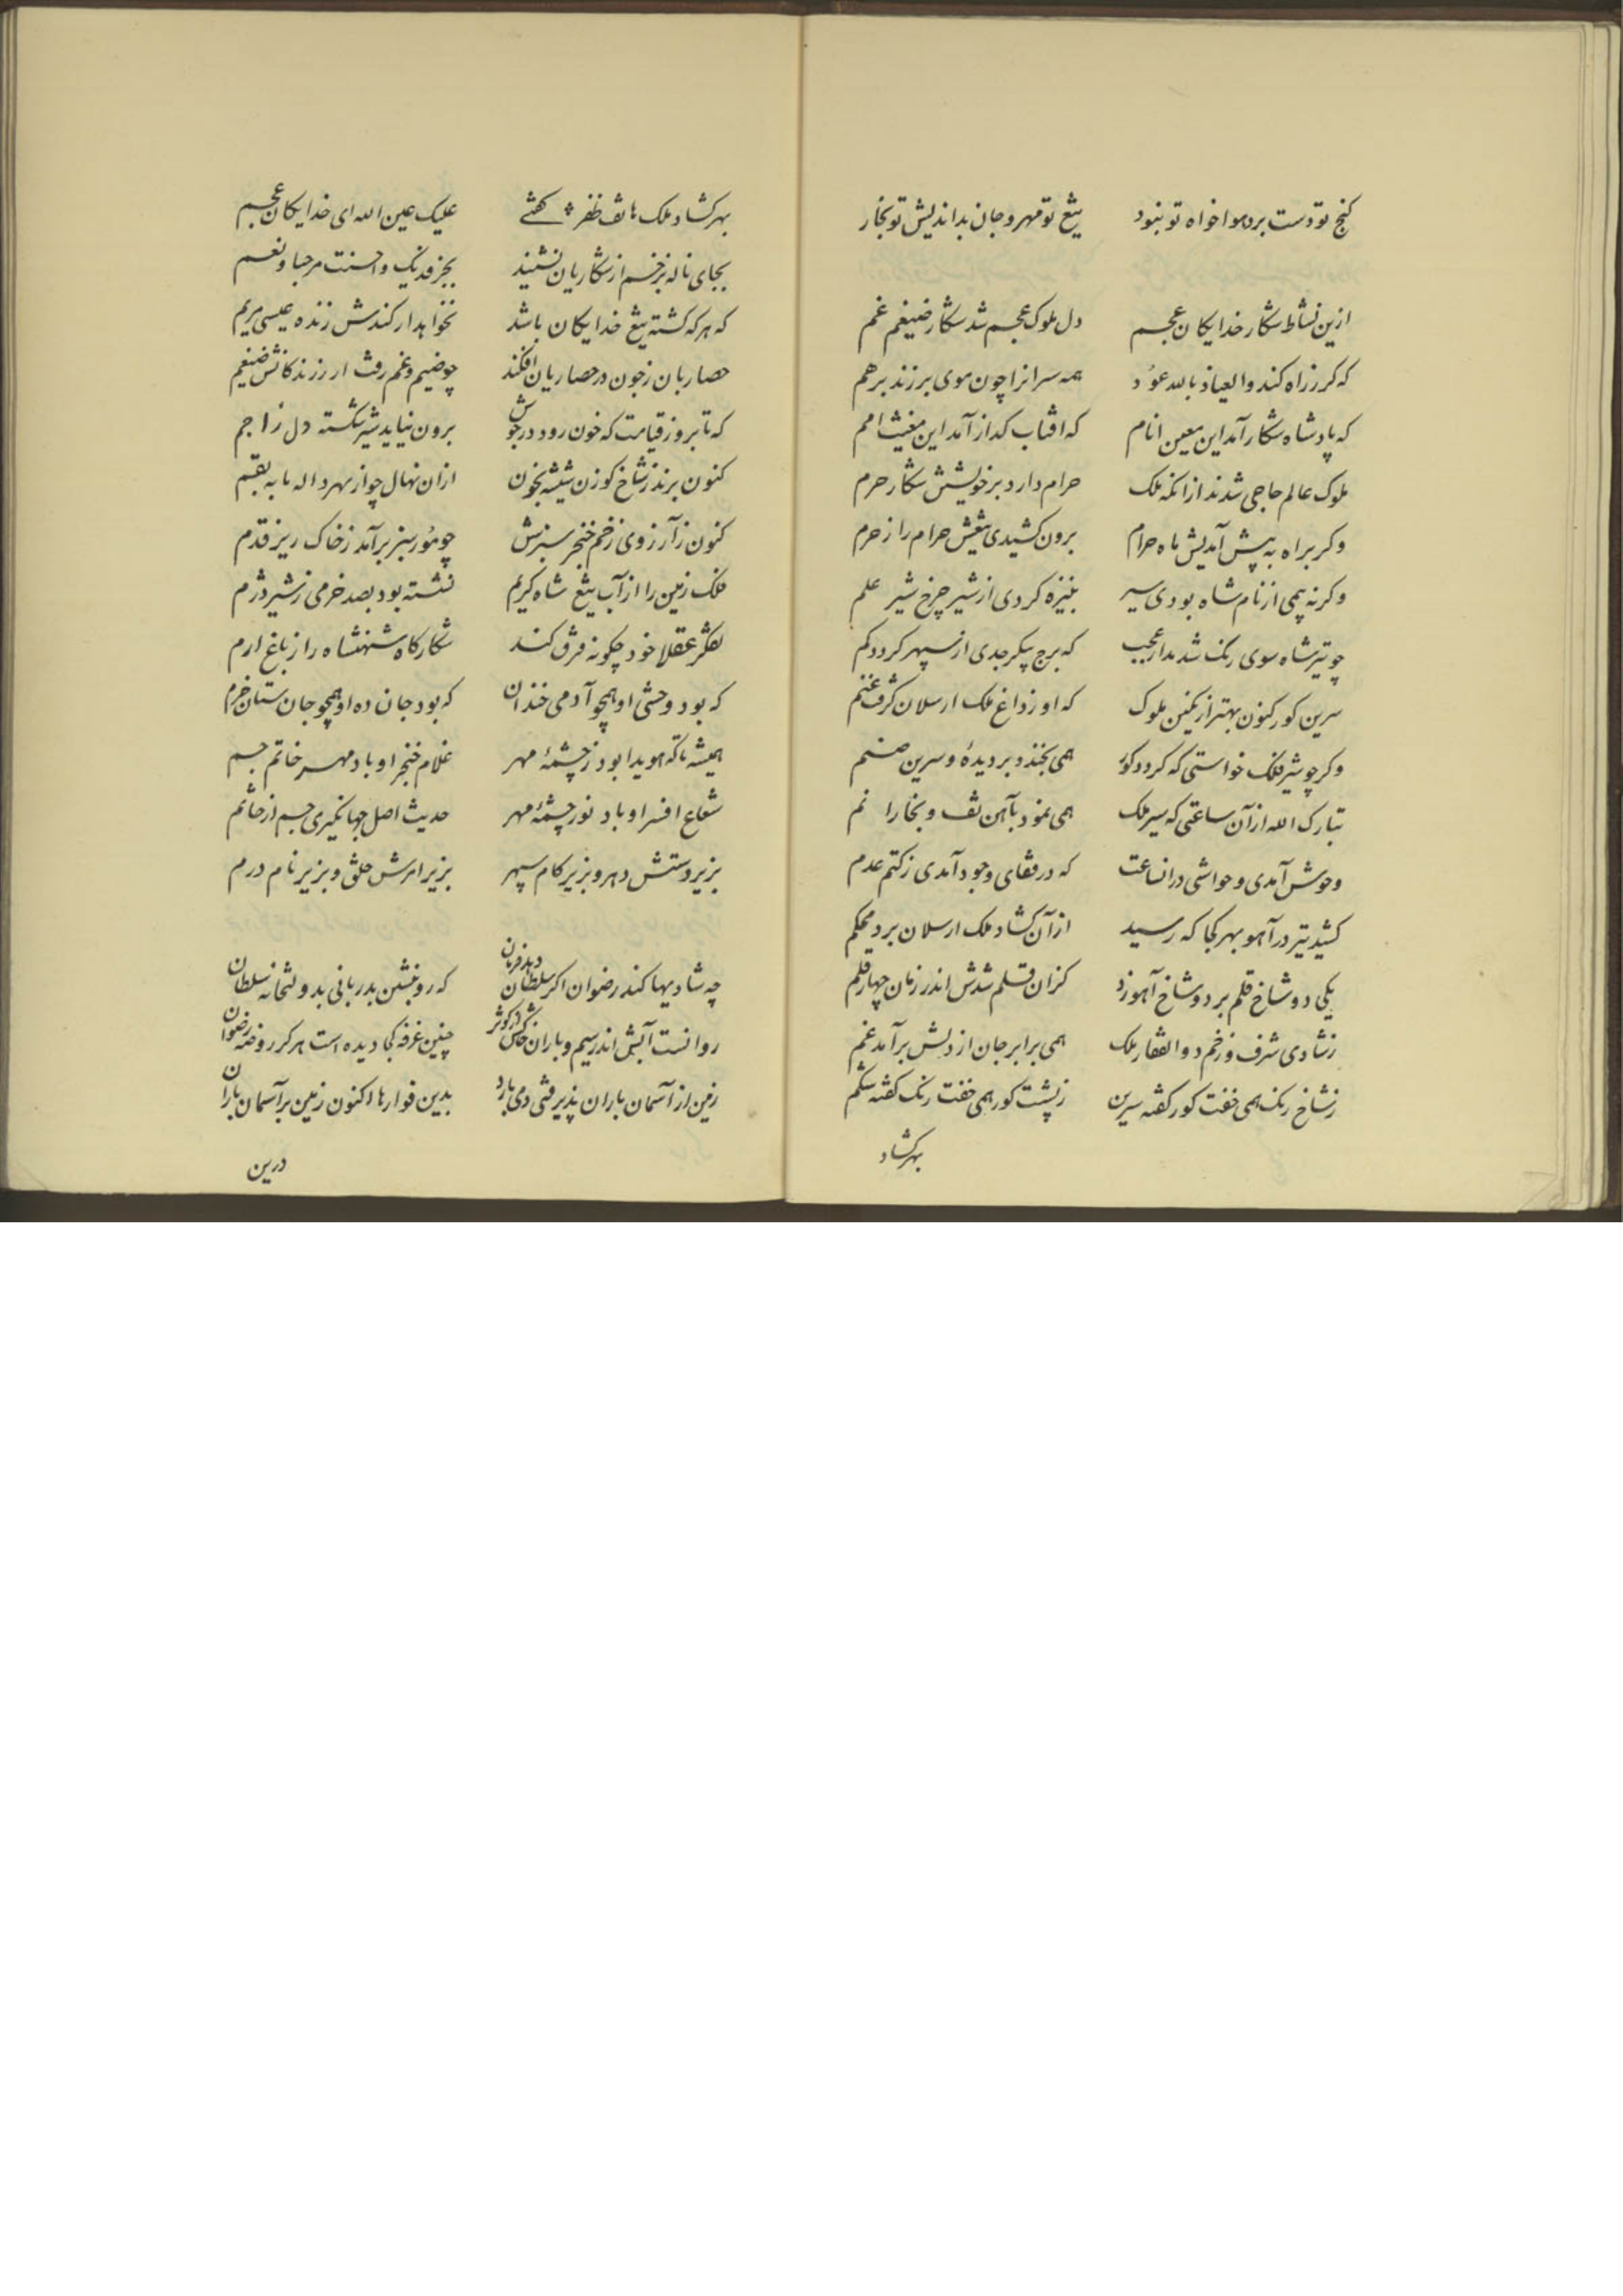 کنج تو دست برد هوا خواه تو نبود تیغ تو مهر و جان بداندیش تو بخار
ازین نشاط شکار خدایکان عجم دل ملوک عجم شد شکار ضیغم غم
که کر زراه کند والعیاذ بالله عود همه سرانرا چون موی بر زند برهم
که پادشاه شکار آمد این معین انام که افتاب کداز آمد این مغیث امم
ملوک عالم حاجی شدند از انکه ملک حرام دارد بر خویشتن شکار حرم
وکر براه به پیش آمدیش ماه حرام برون کشیدی تیغش حرام را ز حرم
وکر نه پیمی از نام شاه بودی سیر بنیزه کردی از شیر چرخ شیر علم
چو تیر شاه سوی رنک شد مدار عجب که برج پیکر جدی از سپهر کردد کم
سرین کور کنون بهتر از نکین ملوک که او ز داغ ملک ارسلان کرفت غنم
وکر چو شیر فلک خواستی که کردد کور همی بخندد بر دیده و سرین صنم
تبارک الله از آن ساعتی که سیر ملک همی نمود بآهن تف و بخارا نم
وحوش آمدی و حواشی در انساعت که در قفای وجود آمدی ز کتم عدم
کشید تیر در آهو بهر کجا که رسید از آن کشاد ملک ارسلان برد محکم
یکی دو شاخ قلم برد و شاخ آهو زد کزان قلم شدش اندر زمان چهار قلم
زشادی شرف و زخم ذوالفقار ملک همی برابر جان از دلش برآمد غم
ز شاخ رنک همی خفت کور کفته سرین ز پشت کور همی خفت رنک کفته شکم
بهر کشاد
بهر کشاد ملک هاتف ظفر کفتے علیک عین الله ای خدایکان عجم
بجای ناله زخم از شکاریان نشنید بجز فدیتک و احسنت مرحبا و نعم
که هر که کشته تیغ خدایکان باشد نخواهد ار کندش زنده عیسی مریم
حصاریان ز خون در حصاریان افکند چو ضیم و غم رفت از زندکانش ضیغم
که تا بروز قیامت که خون رود در جوش برون نیاید شیر شکسته دل ز اجم
کنون برند ز شاخ کوزن شیشه بخون ازان نهال چو از مهر داله مابه بقم
کنون ز آرزوی زخم خنجر سبزش چو مور سبز برآمد ز خاک ریز قدم
فلک زمین را از آب تیغ شاه کریم نشسته بود بصد خرمی ز شیر دژم
تفکر عقلا خود چکونه فرق کند شکارکاه شهنشاه را ز باغ ارم
که بود وحشی او همچو آدمی خندان که بود جان ده او همچو جان ستان خرم
همیشه تا که هویدا بود ز چشمهٔ مهر غلام خنجر او باد مهر خاتم جم
شعاع افسر او باد نور چشمهٔ مهر حدیث اصل جهانکیری جم از خاتم
بزیر دستش دهر و بزیر کام سپهر بزیر امرش خلق و بزیر نام درم
چه شادیها کند رضوان اکر سلطان دهد فرمان که رو بنشین بدربانی بدولتخانه سلطان
روا نست آبش اندر سیم و باران خاکش در کوثر چنین غرفه کجا دیده است هرکز روضه رضوان
زمین از آسمان باران پذیرفتی و می بارد بدین فوارها اکنون زمین بر آسمان باران
درین